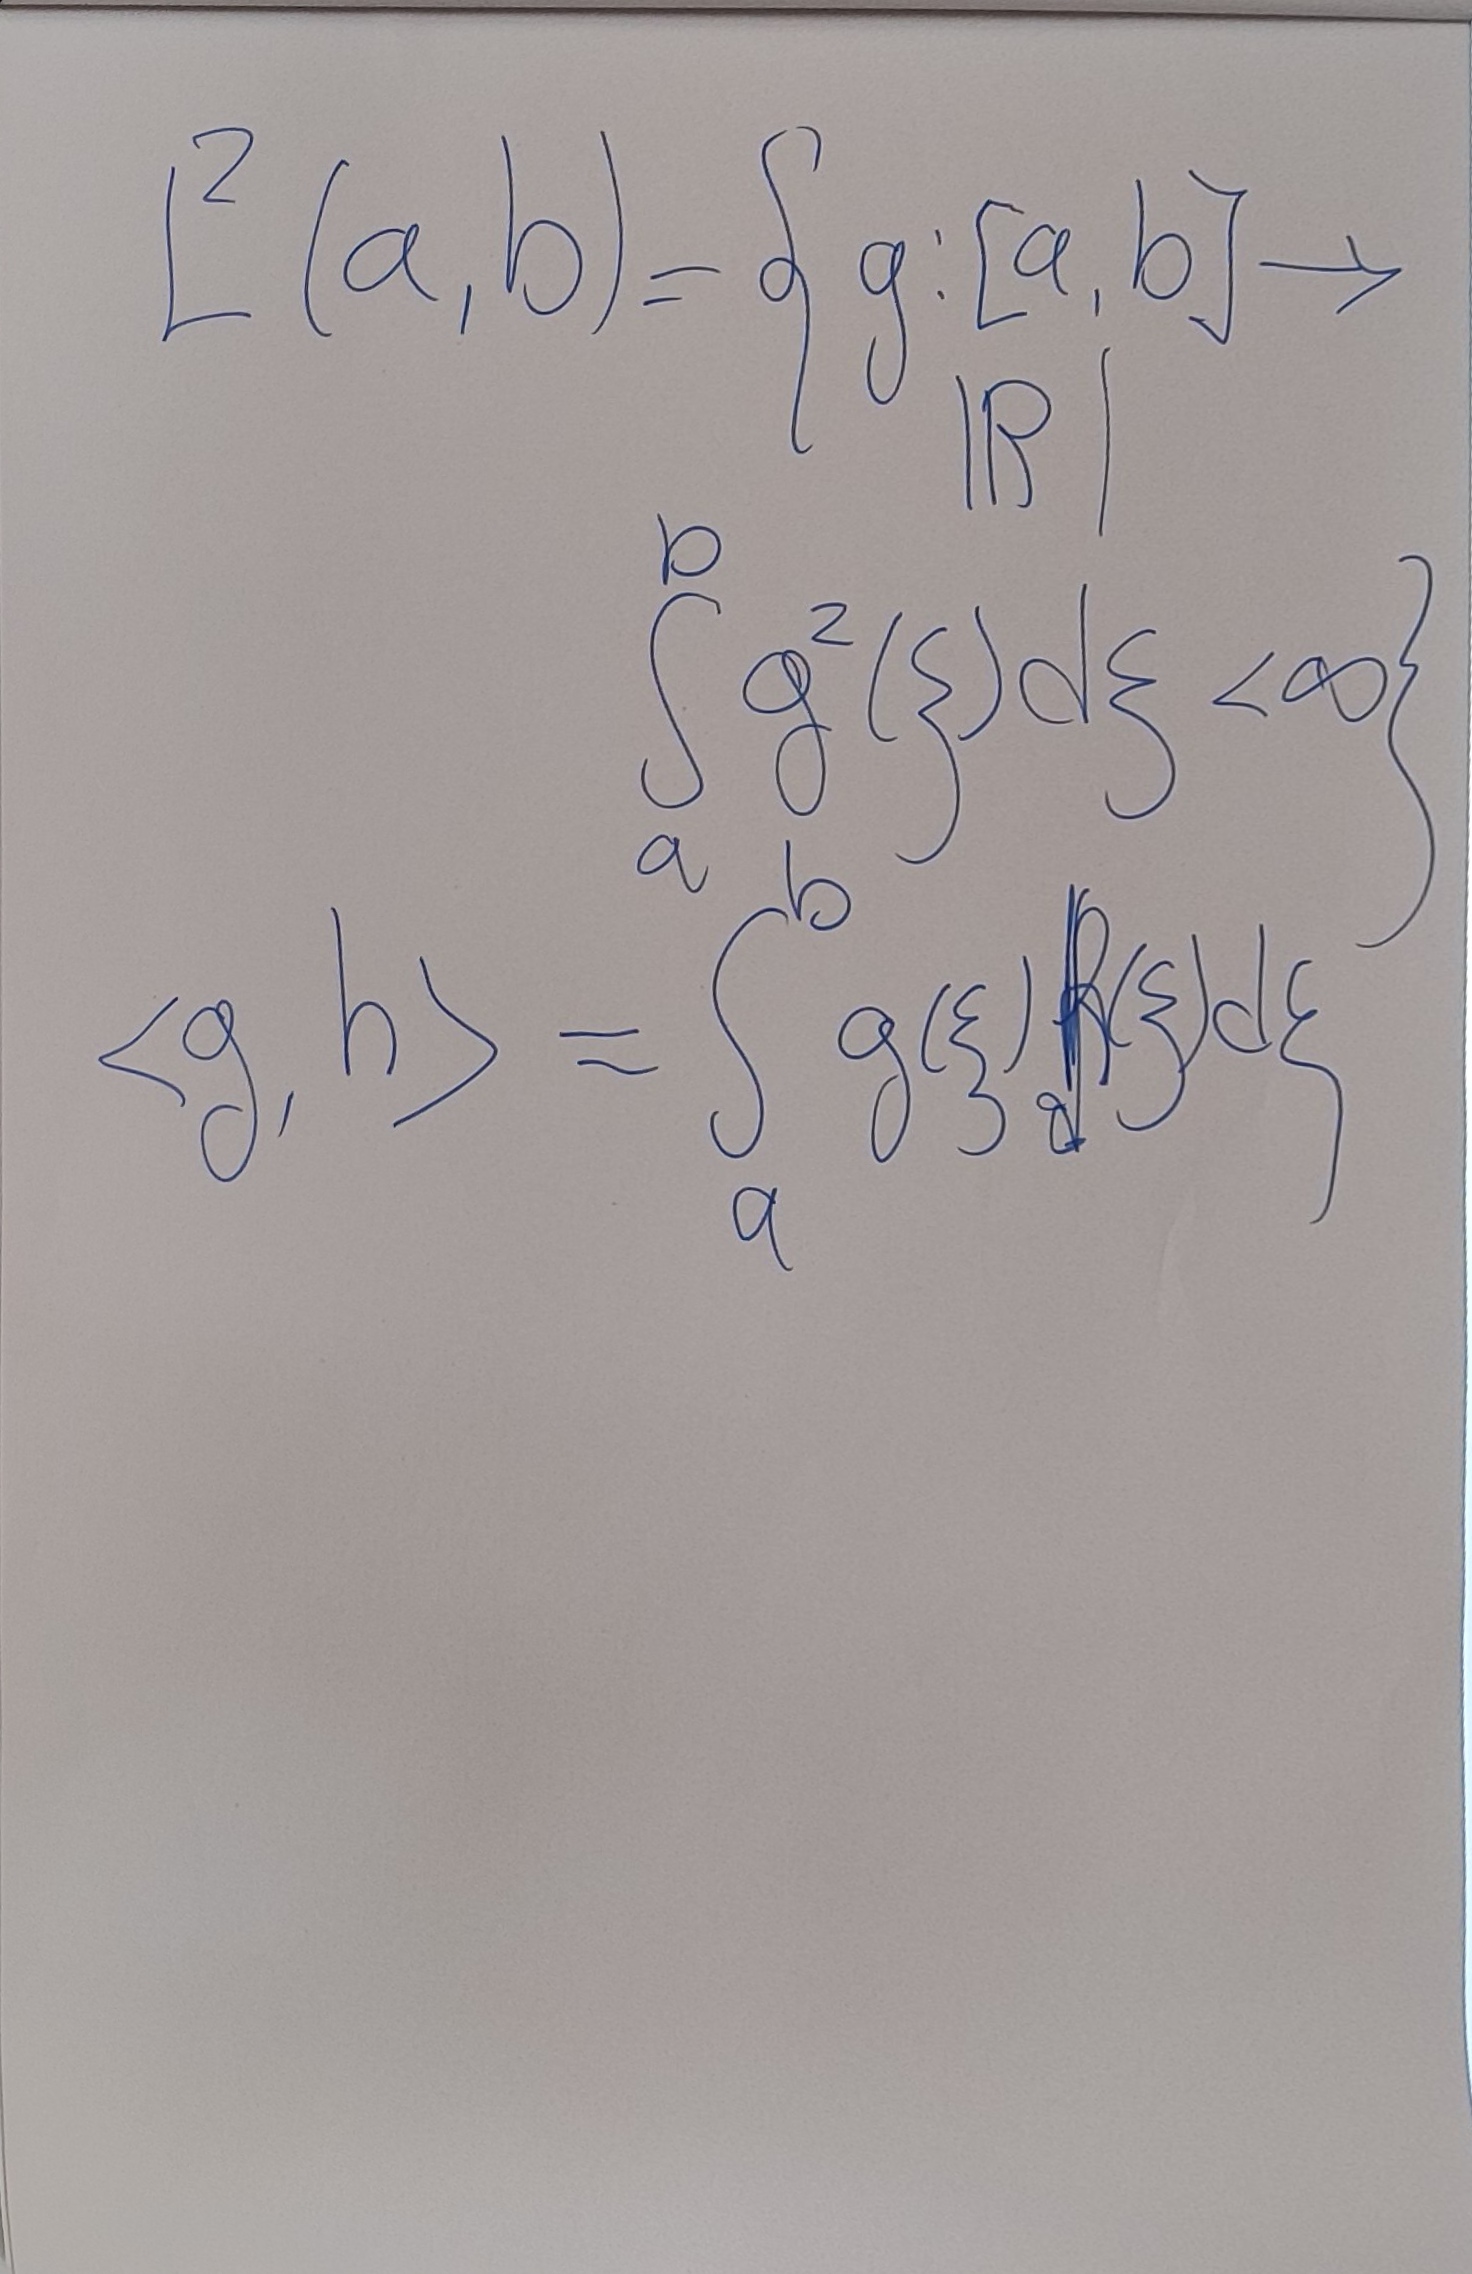 L²(a,b) = { g: [a,b] →
ℝ |
∫_a^b g²(ξ)dξ < ∞ }
<g, h> = ∫_a^b g(ξ) h(ξ)dξ